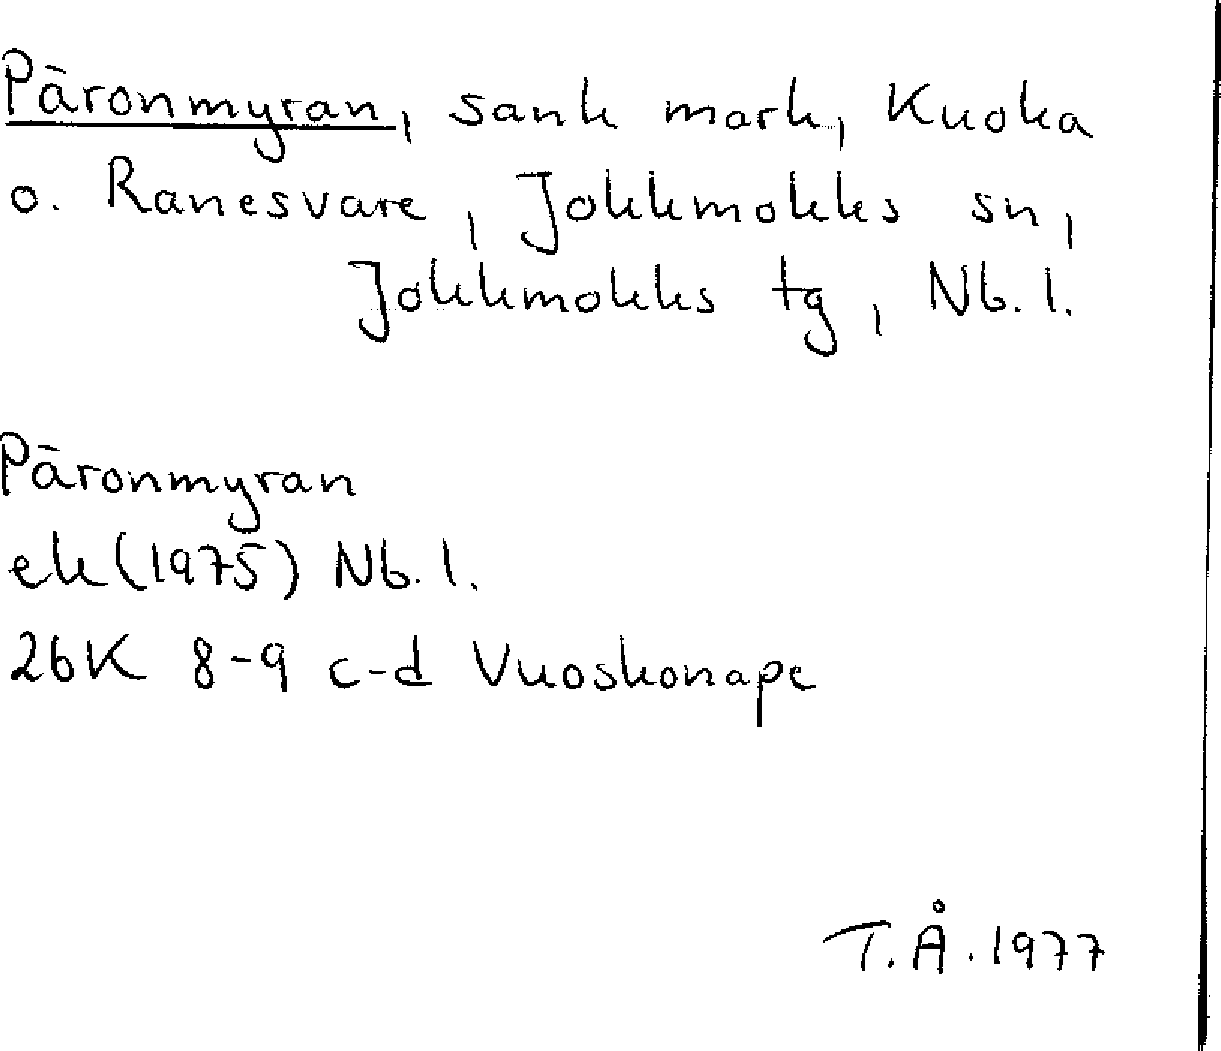 Päronmyran, sank mark, Kuoka
o. Ranesvare, Jokkmokks sn,
Jokkmokks tg, Nb. l.
Päronmyran
ek (1975) Nb. l.
26K 8-9 c-d Vuoskonape
T.Å. 1977